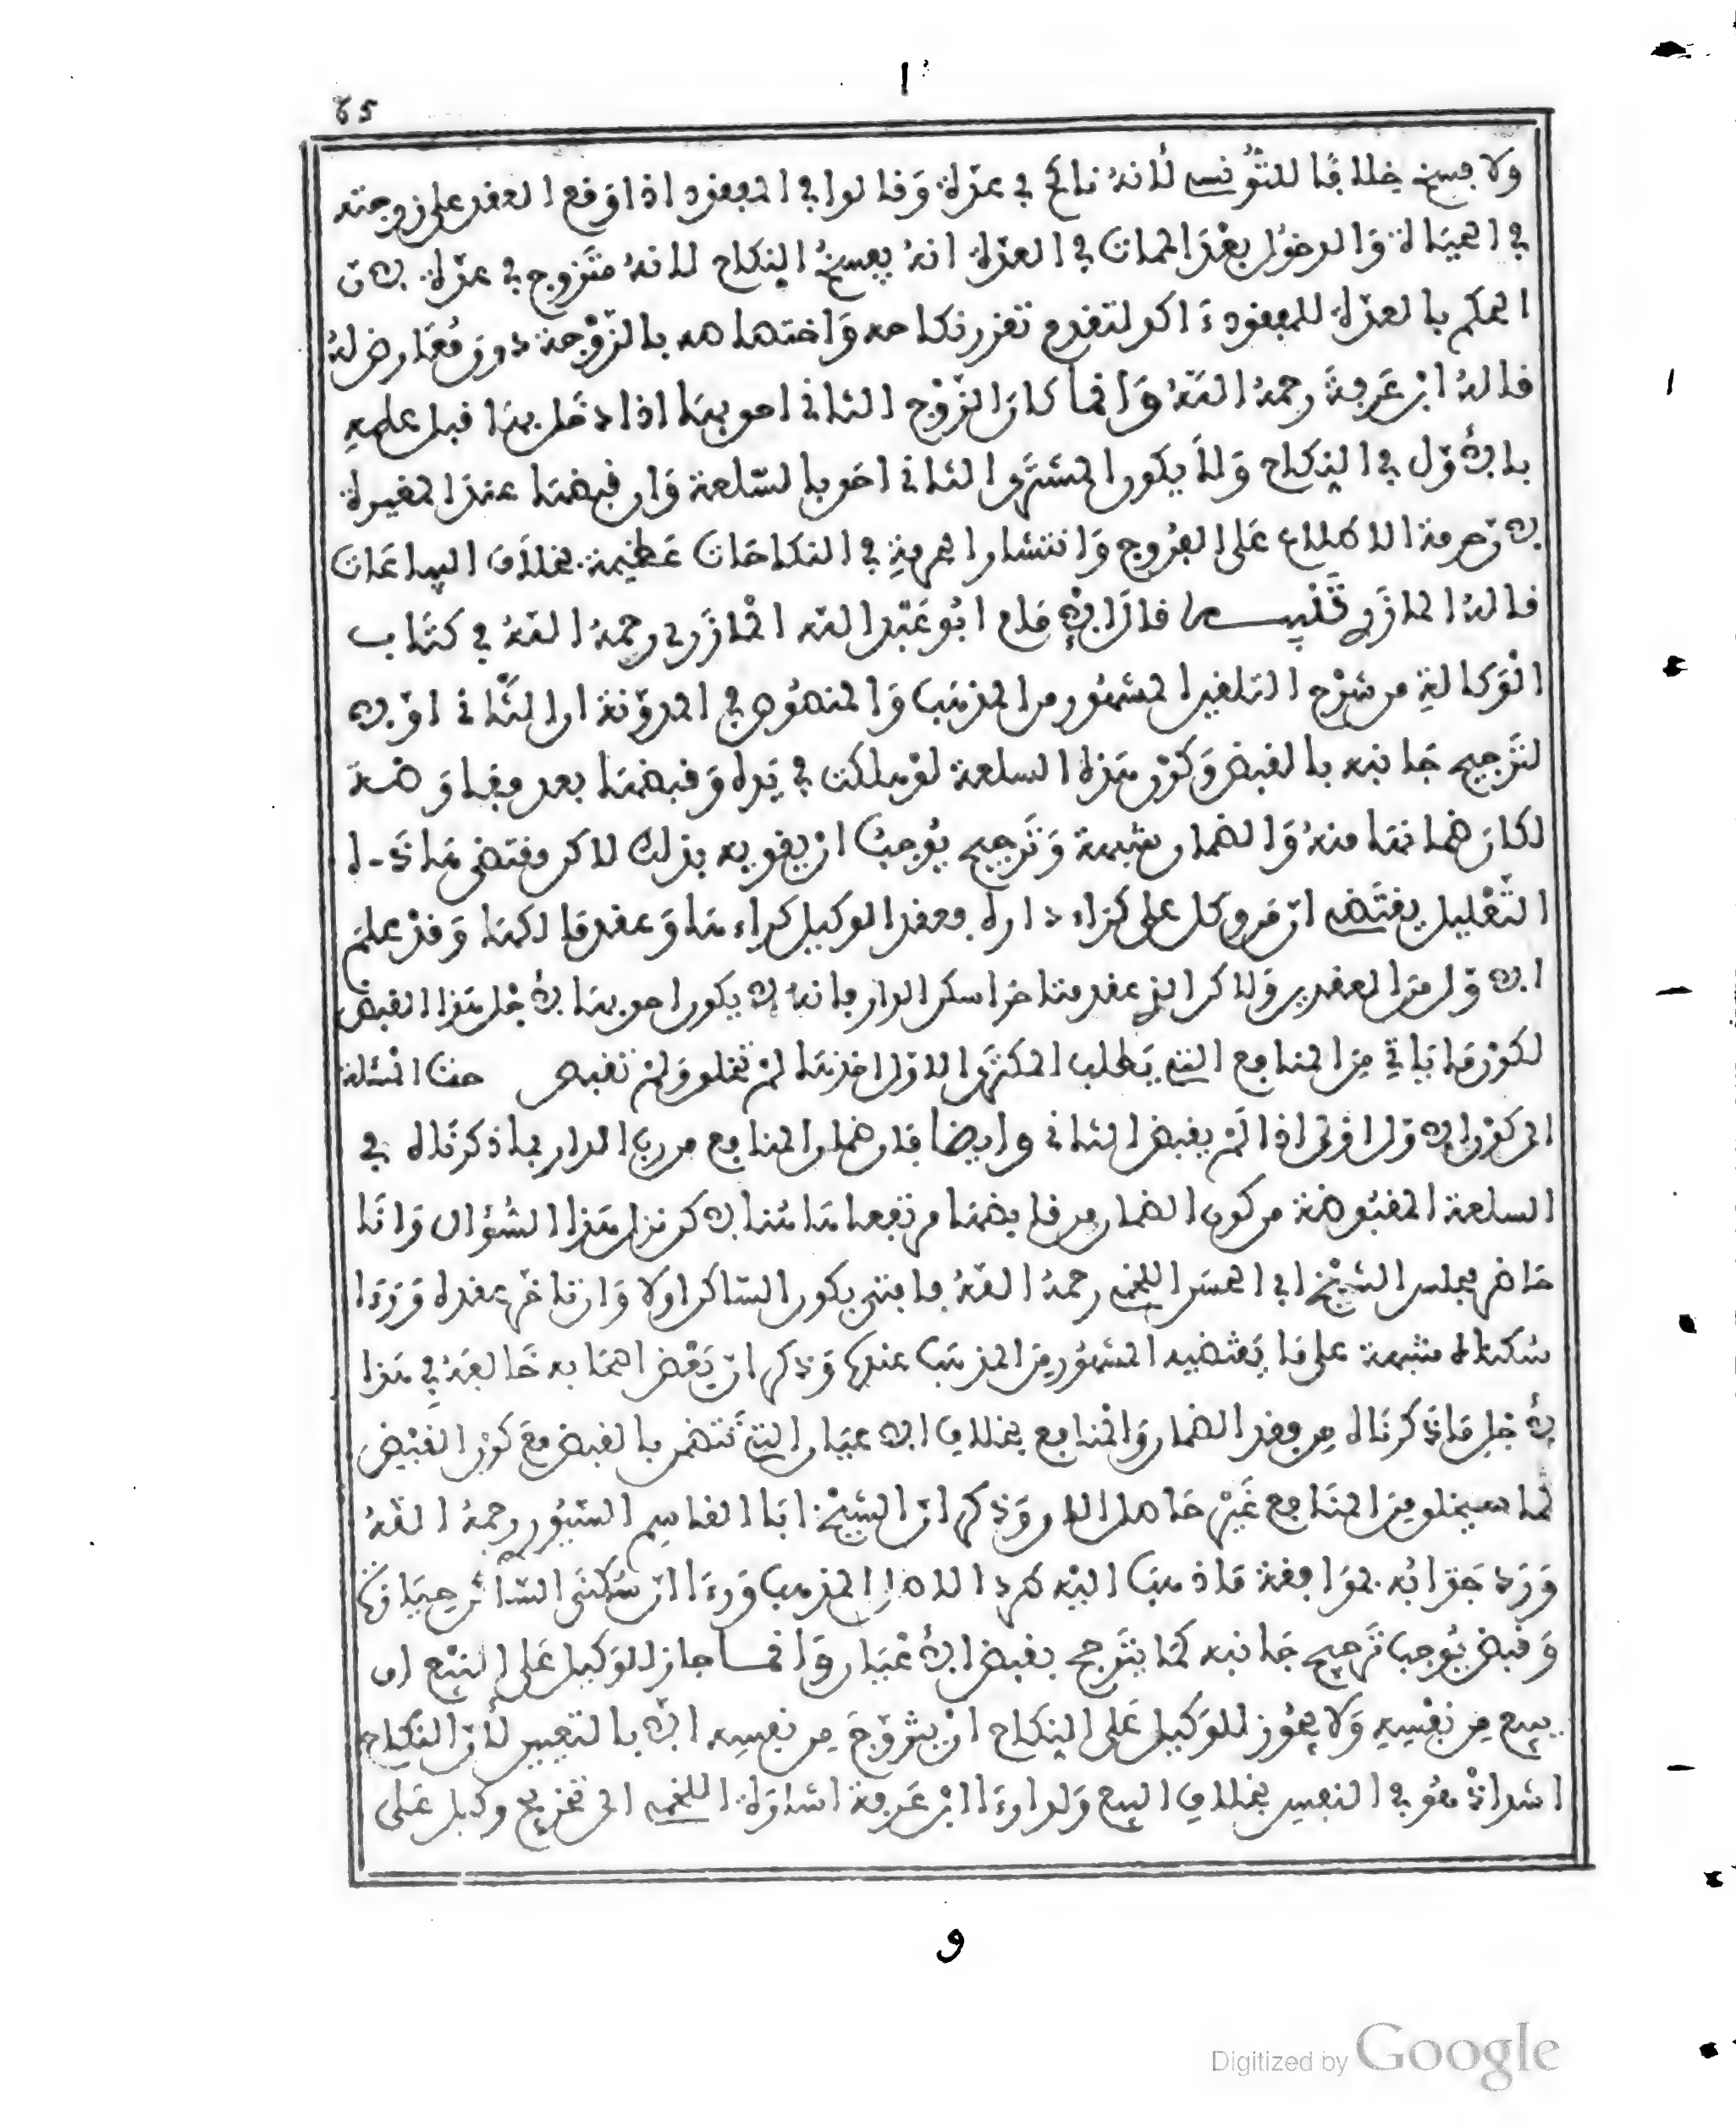 65
ولا فسخ خلافا للتونسي لأنه ناكح في عدة وقالوا في المفقود اذا وقع العقد على زوجته
في الحياة والدخول بعد الممات في العدة انه يفسخ النكاح لانه متزوج في عدة لأن
الحكم بالعدة للمفقود اكد لتقدم تقرر نكاحه واختصاصه بالزوجة دون معارض له
قاله ابن عرفة رحمه الله وانما كان الزوج الثاني احق بها اذا دخل بها قبل علمه
بالأول في النكاح ولا يكون المشتري الثاني احق بالسلعة وان قبضها عند المغيرة
لأن حرمة الاطلاع على الفروج وانتشار الحرمة في النكاحات عظيمة بخلاف البياعات
قاله المازري تنبيه قال الإمام ابو عبد الله المازري رحمه الله في كتاب
الوكالة من شرح التلقين المشهور من المذهب والمنصوص في المدونة ان الثاني اولى
لترجيح جانبه بالقبض وكون هذه السلعة لو هلكت في يده وقبضها بعد معاوضة
لكان ضمانها منه والضمان شبهة وترجيح يوجب ان يقوى به بذلك لاكن مقتضى هاذا
التعليل يقتضي ان من وكل على كراء داره فعقد الوكيل كراءها وعقد مالكها وقد علم
الأول من العقدين ولاكن الذي عقد متاخرا سكن الدار فانه لا يكون احق بها لأجل هذا القبض
لكون ما ياتي من المنافع التي يطلب المكتري الاول اخذها لم تخلق ولم تقبض هذا المسئلة
الى كون الأول اولى اذا لم يقبض الثاني وايضا فان ضمان المنافع من رب الدار بما ذكرناه في
السلعة المقبوضة من كون الضمان من قابضها مرتفعا هاهنا لاكن نزل هذا السؤال وانا
حاضر مجلس الشيخ ابي الحسن اللخمي رحمه الله فافتى بكون الساكن اولا وان تاخر عقده ورءا
سكناه شبهة على ما يقتضيه المشهور من المذهب عندنا وذكر ان بعض اصحابه خالفه في هذا
لأجل ما ذكرناه من فقد الضمان والمنافع بخلاف الأعيان التي تتضمن بالقبض مع كون القبض
لما سيخلق من المنافع غير حاصل الان وذكر ان الشيخ ابا القاسم السيوري رحمه الله
ورد جوابه بموافقة ما ذهب اليه طرد الاصل المذهب ورءا ان سكنى الساكن حيازة
وقبض يوجب ترجيح جانبه كما يترجح بقبض الأعيان وانما جاز للوكيل على البيع ان
يبيع من نفسه ولا يجوز للوكيل على النكاح ان يتزوج من نفسه الا بالتعيين لأن النكاح
اشد اذ هو في النفس بخلاف البيع ولذا رءا ابن عرفة اشارة اللخمي الى تخريج وكيل على
و
Digitized by Google